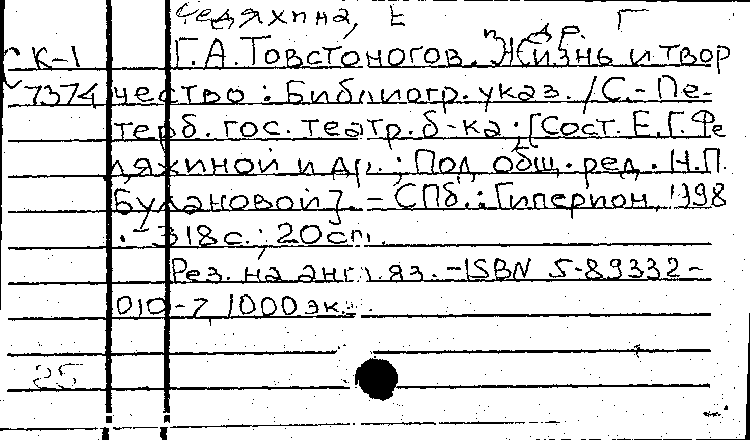 Федяхина, Е Г
и др.
СК-1 Г.А.Товстоногов. Жизнь и твор
7374 чество : Библиогр. указ. / С.-Пе-
терб. гос. театр. б-ка ; [Сост. Е.Г.Фе
дяхиной и др. ; Под общ. ред. Н.П.
Булановой]. - СПб. : Гиперион, 1998
. - 318с. ; 20см.
Рез. на англ. яз. - ISBN 5-89332-
010-7, 1000 экз.
25